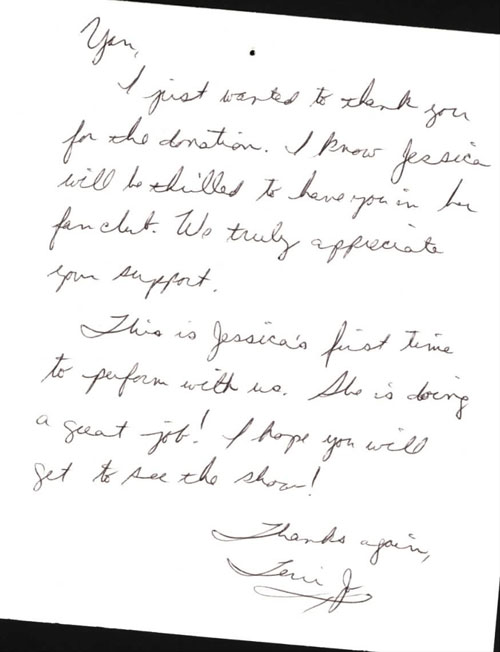 Yan,
I just wanted to thank you
for the donation. I know Jessica
will be thrilled to have you in her
fan club. We truly appreciate
your support.
This is Jessica's first time
to perform with us. She is doing
a great job! I hope you will
get to see the show!
Thanks again,
Terri J